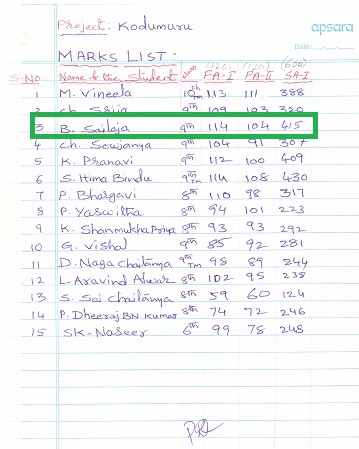 Project: Kodumuru
apsara
Date:
MARKS LIST:
(120) (120) (600)
S.NO. Name of the Student FA-I FA-II SA-I
1 M. Vineela 10th TM 113 111 388
2 Ch. Srija 9th 109 103 320
3 B. Sailaja 9th 114 104 415
4 Ch. Sowjanya 9th 104 91 307
5 K. Pranavi 9th 112 100 409
6 S. Hima Bindu 9th TM 114 108 430
7 P. Bhargavi 8th 110 98 317
8 P. Yaswitha 8th 94 101 223
9 K. Shanmukha Priya 8th 93 93 292
10 G. Vishal 9th 85 92 281
11 D. Naga Chaitanya 9th TM 98 89 244
12 L. Aravind Alwar 8th 102 95 238
13 S. Sai Chaitanya 8th 59 60 124
14 P. Dheeraj BN Kumar 8th 74 72 246
15 SK. Naseer 6th 99 78 248